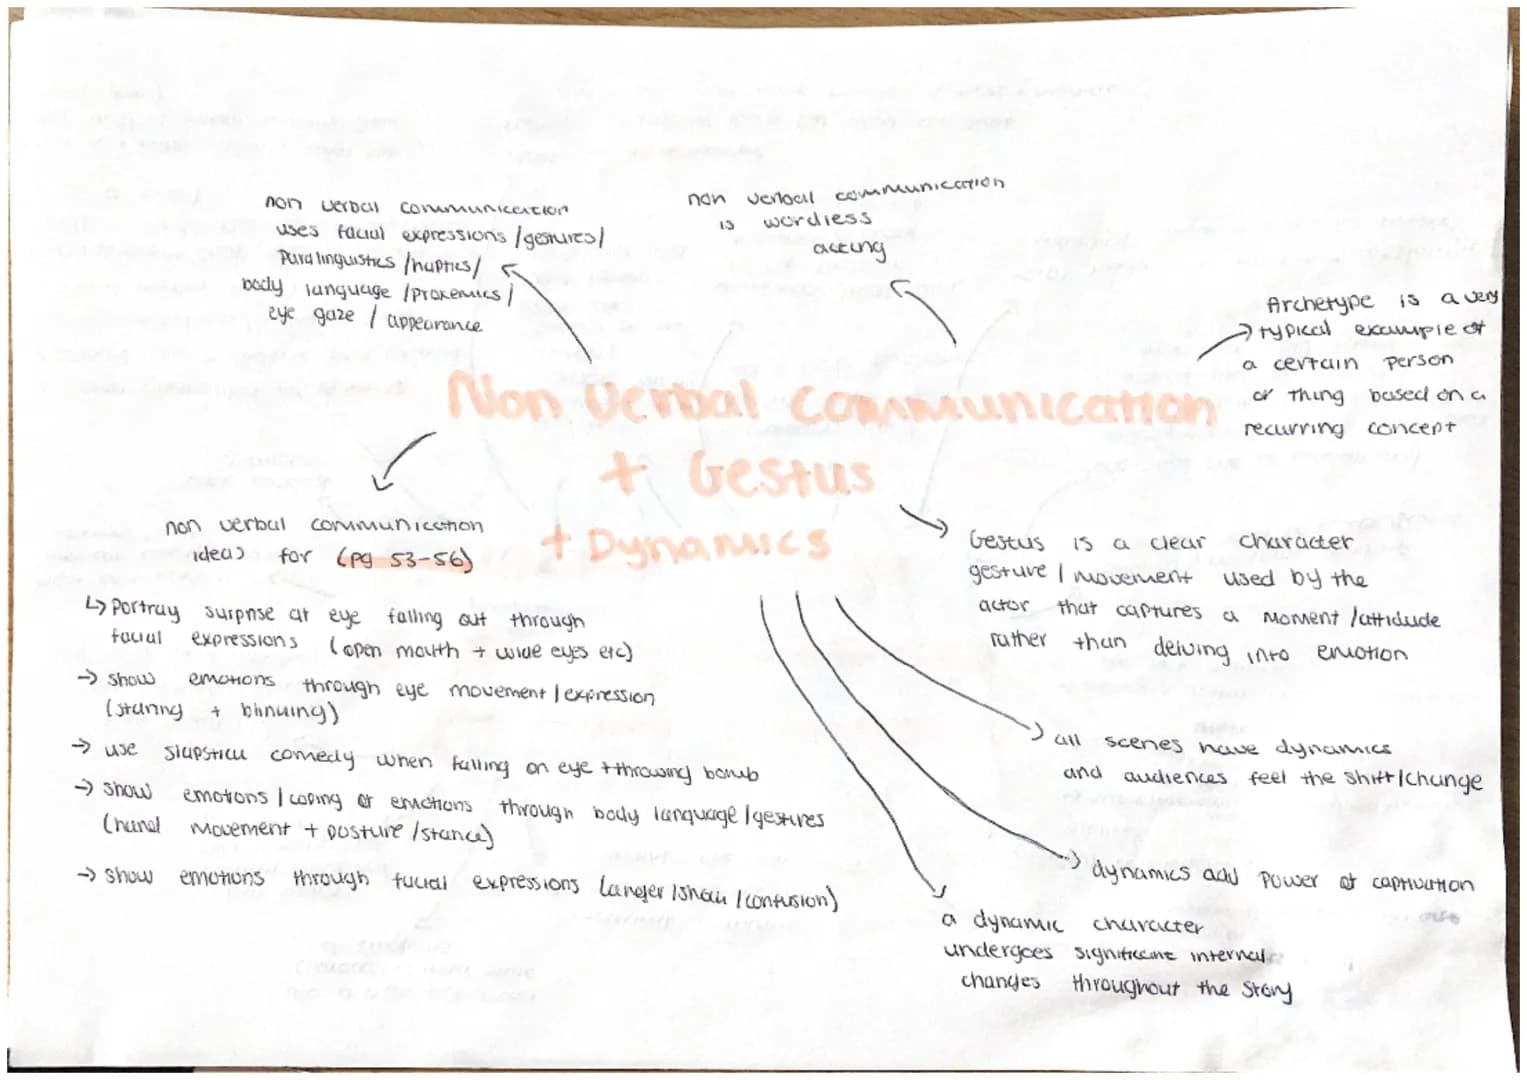 non verbal communication
uses facial expressions / gestures /
Paralinguistics / haptics /
body language / proxemics /
eye gaze / appearance
non verbal communication
is wordless
acting
Archetype is a very
typical example of
a certain person
or thing based on a
recurring concept
Non Verbal Communication
+ Gestus
+ Dynamics
non verbal communication
ideas for (pg 53-56)
Portray surprise at eye falling out through
facial expressions (open mouth + wide eyes etc)
→ show emotions through eye movement / expression
(staring + blinking)
→ use slapstick comedy when falling on eye + throwing bomb
→ show emotions / coping of emotions through body language / gestures
(hand movement + posture / stance)
→ show emotions through facial expressions (anger / shock / confusion)
Gestus is a clear character
gesture / movement used by the
actor that captures a moment / attidude
rather than delving into emotion
all scenes have dynamics
and audiences feel the shift / change
dynamics add power of captivation
a dynamic character
undergoes significant internal
changes throughout the story